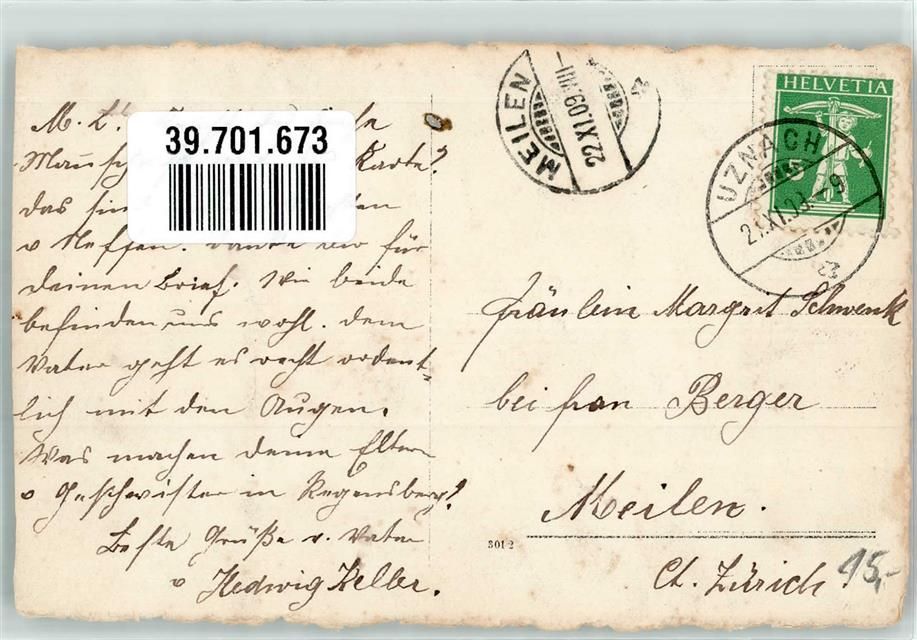 39.701.673
M. L.
Karte?
das sin
v Neffen. Danke dir für
deinen Brief. Wir beide
befinden uns wohl. dem
Vater geht es recht ordent-
lich mit den Augen.
Was machen deine Eltern
v Geschwister in Regensberg?
Beste Grüße v. Vater
v Hedwig Keller.
3012
MEILEN
22.XI.09.VIII-
HELVETIA
5
UZNACH
XI.09.-9
Fräulein Margrit Schwenk
bei frau Berger
Meilen.
Ct. Zürich
15,-